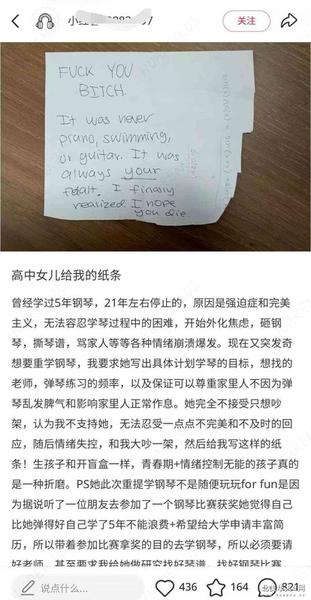 关注
FUCK YOU
BITCH.
It was never
piano, swimming,
or guitar. It was
always your
fault. I finally
realized I hope
you die
高中女儿给我的纸条
曾经学过5年钢琴，21年左右停止的，原因是强迫症和完美
主义，无法容忍学琴过程中的困难，开始外化焦虑，砸钢
琴，撕琴谱，骂家人等等各种情绪崩溃爆发。现在又突发奇
想要重学钢琴，我要求她写出具体计划学琴的目标，想找的
老师，弹琴练习的频率，以及保证可以尊重家里人不因为弹
琴乱发脾气和影响家里人正常作息。她完全不接受只想吵
架，认为我不支持她，无法忍受一点点不完美和不及时的回
应，随后情绪失控，和我大吵一架，然后给我写这样的纸
条！生孩子和开盲盒一样，青春期+情绪控制无能的孩子真的
是一种折磨。PS她此次重提学钢琴不是随便玩玩for fun是因
为据说听了一位朋友去参加了一个钢琴比赛获奖她觉得自己
比她弹得好自己学了5年不能浪费+希望给大学申请丰富简
历，所以带着参加比赛拿奖的目的去学钢琴，所以必须要请
好老师，甚至要求我给她做研究找好琴谱，找好钢琴比赛
说点什么...
436
164
821